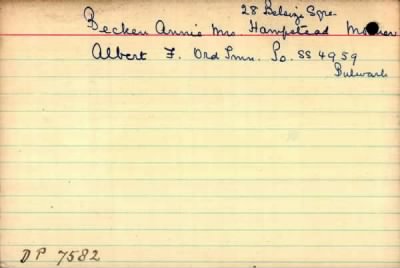 28 Belsize Sqre.
Becken Annie Mrs. Hampstead Mother
Albert F. Ord Smn. Po. SS 4959
Bulwark
DP 7582